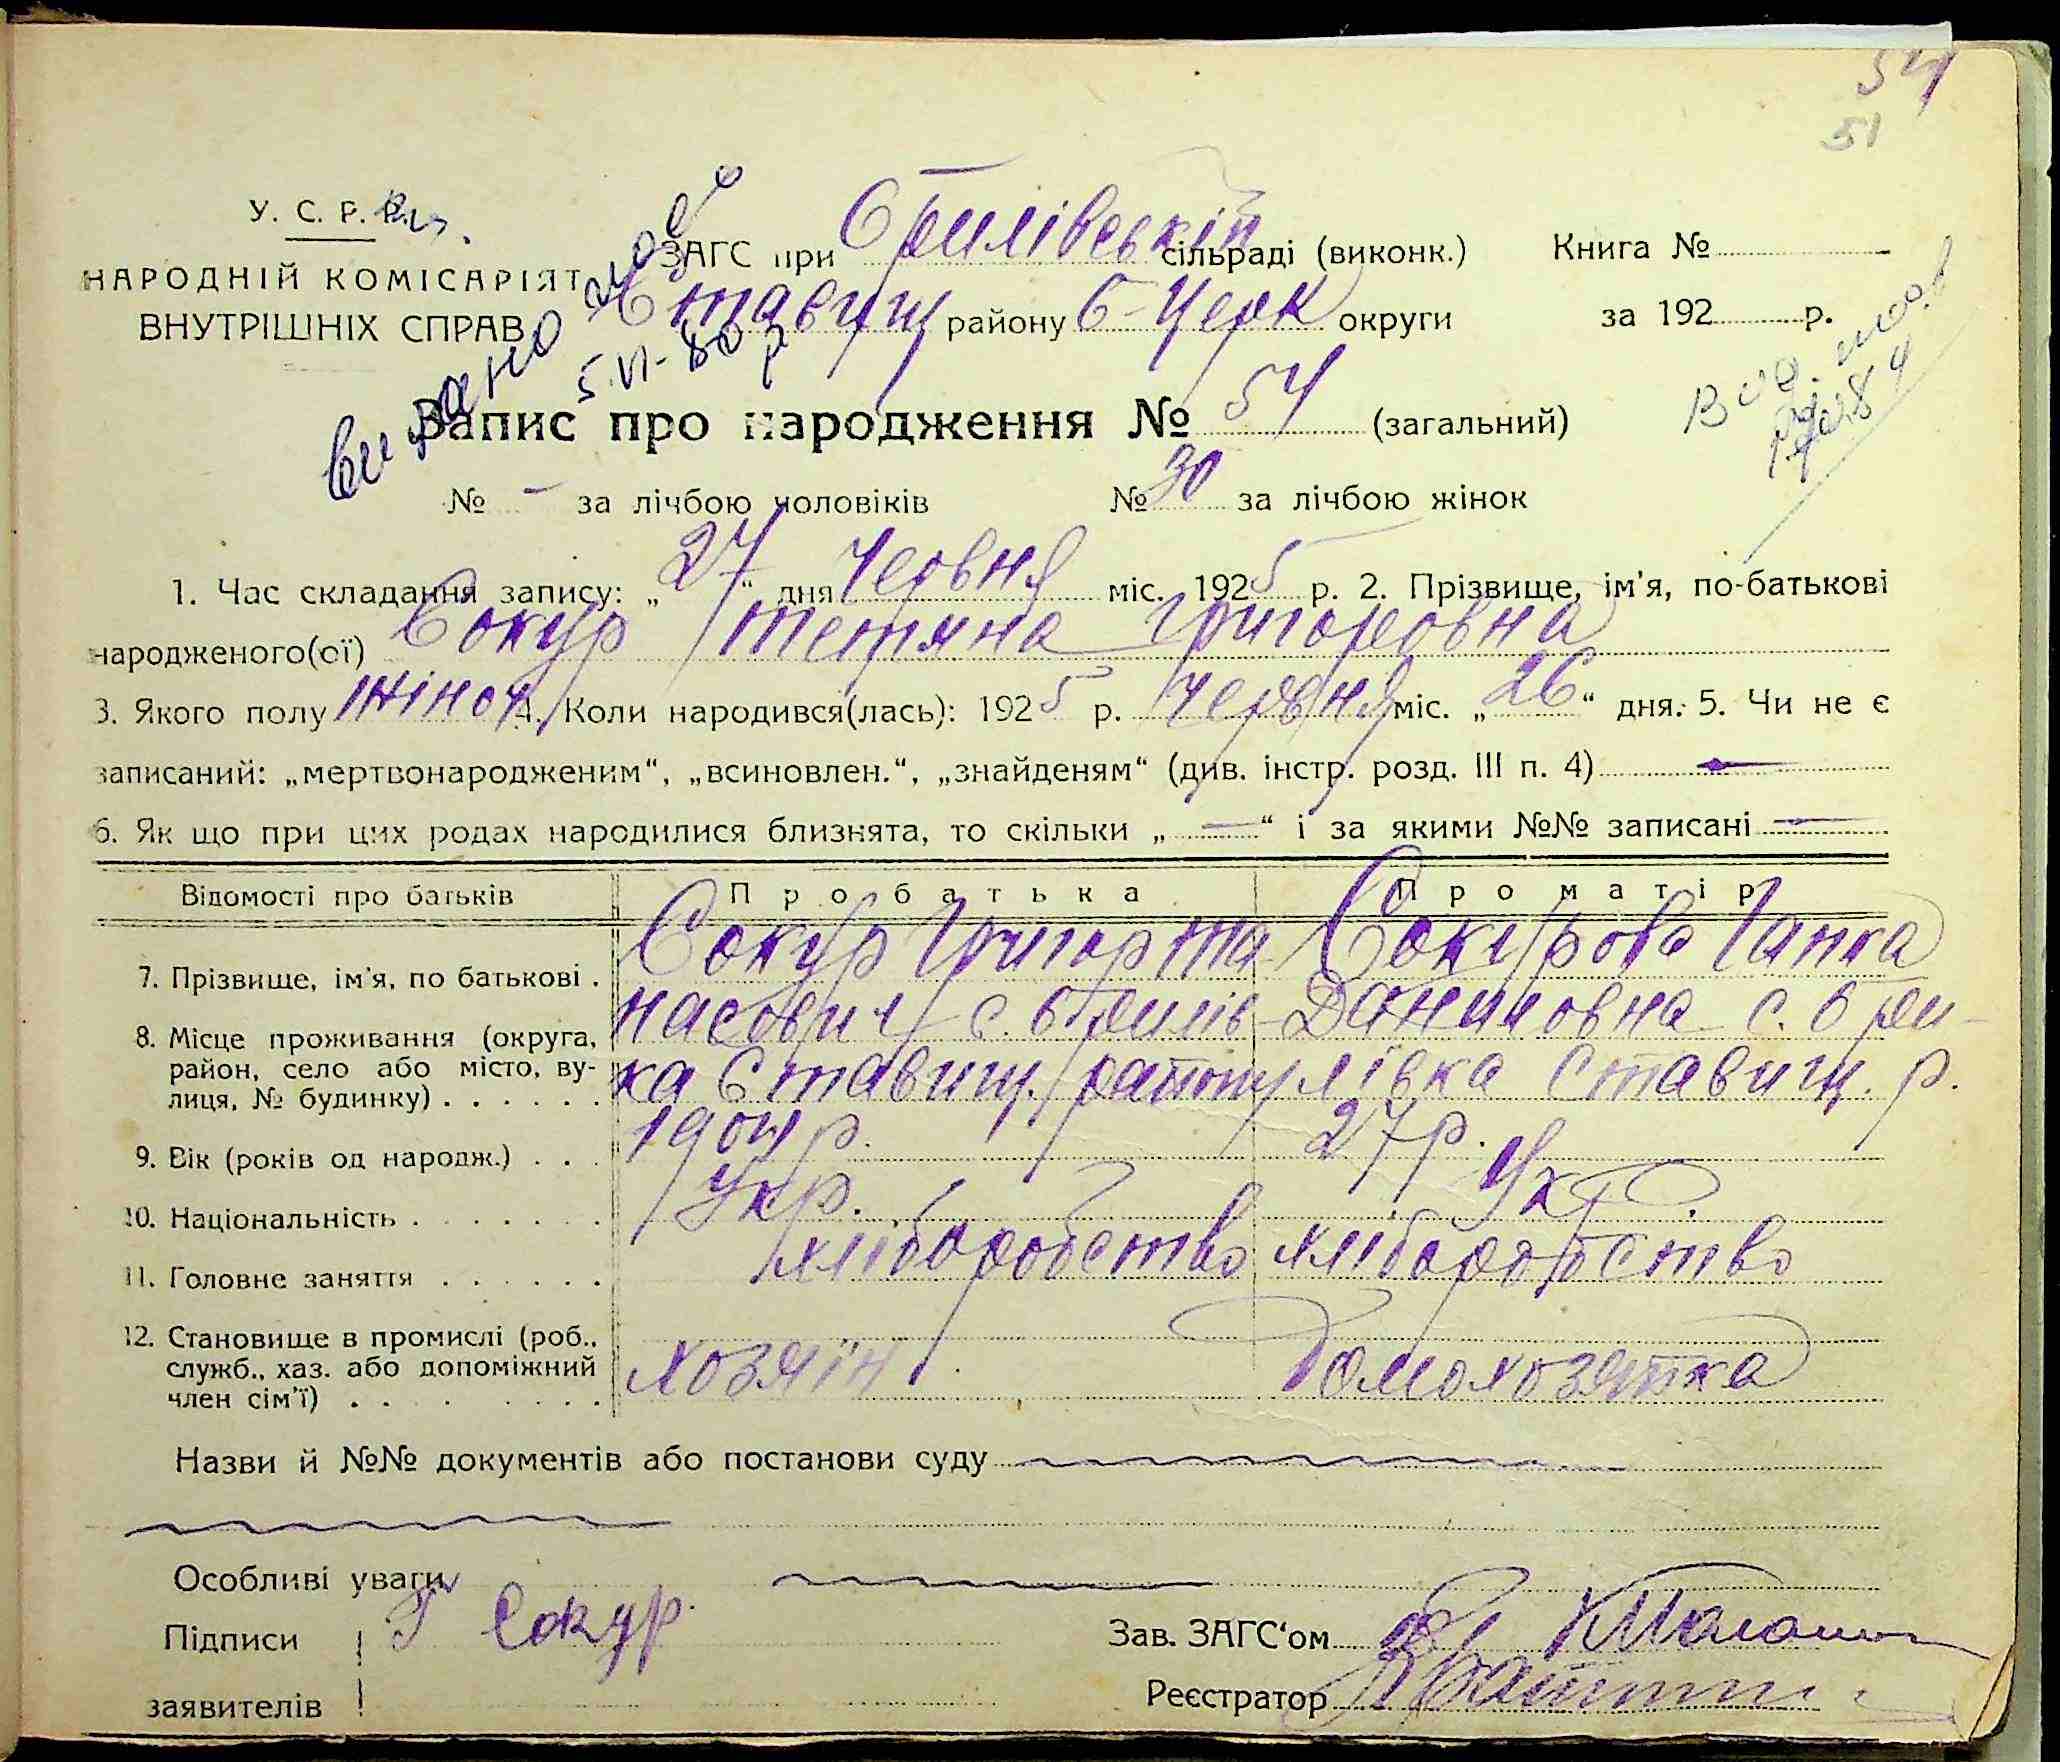 54
51
У. С. Р. Р.
НАРОДНІЙ КОМІСАРІЯТ
ВНУТРІШНІХ СПРАВ
ЗАГС при сільраді (виконк.) Книга №
Ставищ району Б-Церк округи за 192 р.
видано
5.VI-80 р
Запис про народження № 54 (загальний)
№ - за лічбою чоловіків № 30 за лічбою жінок
1. Час складання запису: „27“ дня Червня міс. 1925 р. 2. Прізвище, ім'я, по-батькові
народженого(ої) Сокур Тетяна Григоровна
3. Якого полу жіноч 4. Коли народився(лась): 1925 р. Червня міс. „26“ дня. 5. Чи не є
записаний: „мертвонародженим“, „всиновлен.“, „знайденям“ (див. інстр. розд. III п. 4) —
6. Як що при цих родах народилися близнята, то скільки „—“ і за якими №№ записані —
Відомості про батьків Про батька Про матір
7. Прізвище, ім'я, по батькові . Сокур Григор та- Сокурова Ганка
8. Місце проживання (округа, район, село або місто, вулиця, № будинку) . . . . . . насович с. Брилів- Даниловна с. Бри-
ка Ставищ. району лівка Ставищ. р.
9. Вік (років од народж.) . . . 1904 р. 27 р.
10. Національність . . . . . . . Укр. Укр.
11. Головне заняття . . . . . . хліборобство хліборобство
12. Становище в промислі (роб., служб., хаз. або допоміжний член сім'ї) . . . . . . . хозяїн Домохозяйка
Назви й №№ документів або постанови суду
Особливі уваги
Підписи Г Сокур. Зав. ЗАГС'ом
заявителів Реєстратор